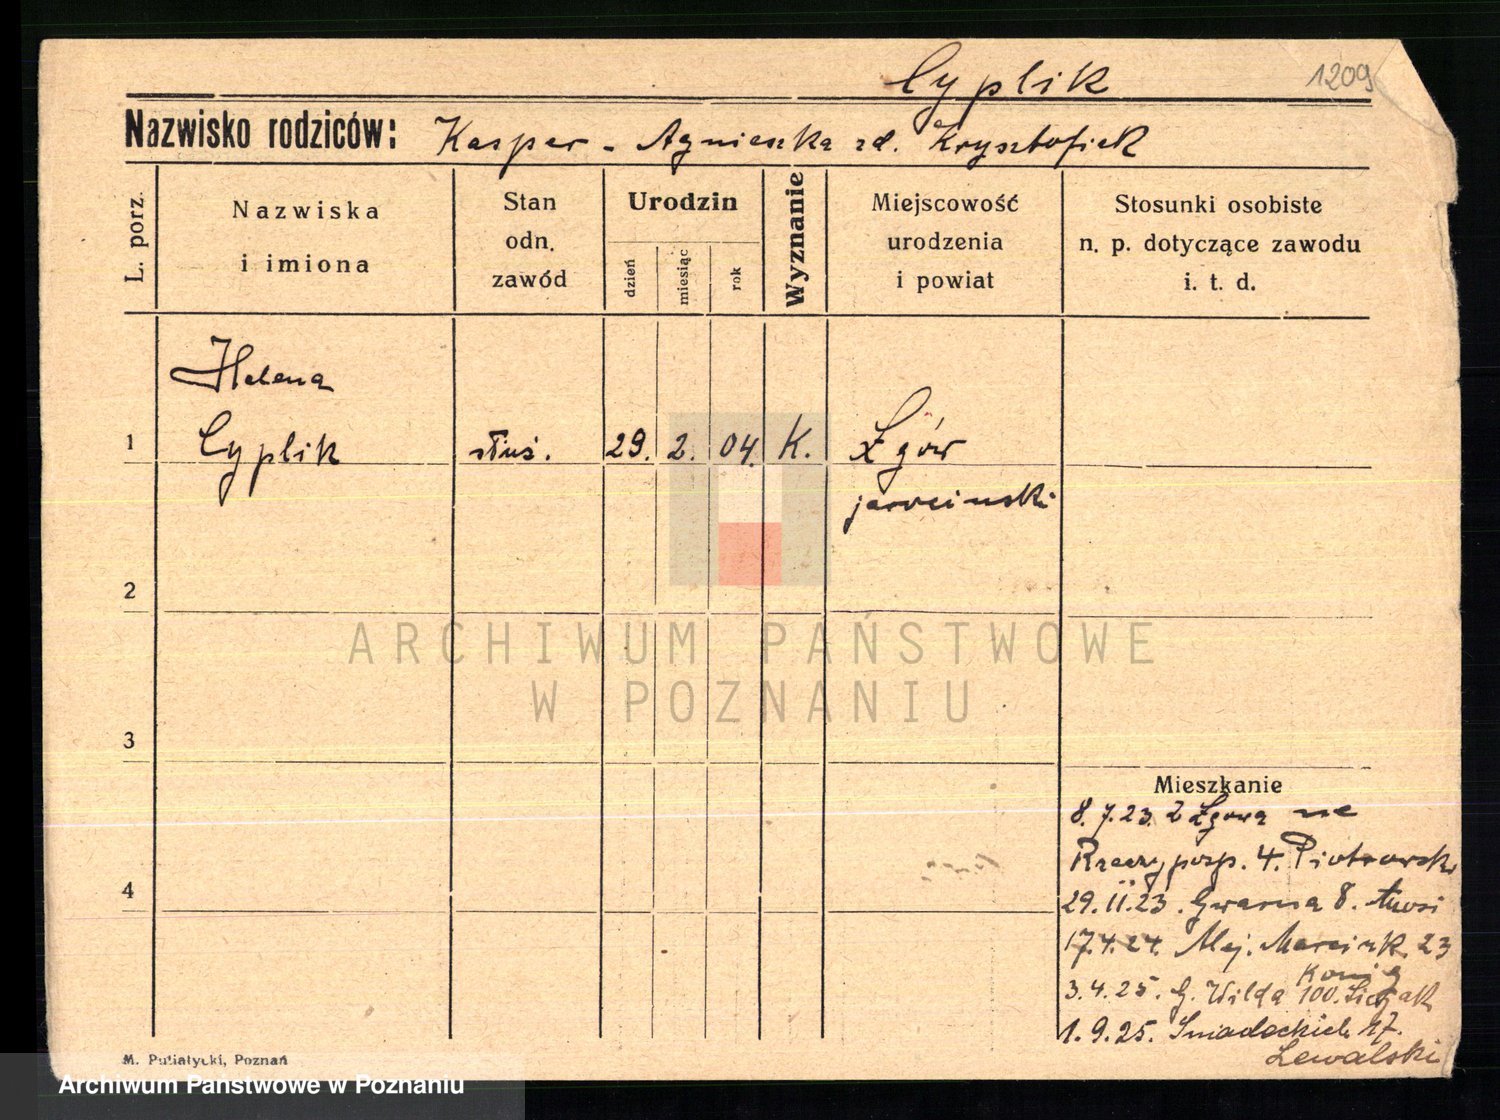 Cyplik 1209
Nazwisko rodziców: Kasper - Agnieszka zd. Krysztofiak
L. porz.
Nazwiska
i imiona
Stan
odn.
zawód
Urodzin
dzień
miesiąc
rok
Wyznanie
Miejscowość
urodzenia
i powiat
Stosunki osobiste
n. p. dotyczące zawodu
i. t. d.
Helena
1 Cyplik służ. 29. 2. 04. K. Żgów
jarociński
2
ARCHIWUM PAŃSTWOWE
W POZNANIU
3
Mieszkanie
8.7.23. z Żgowa na
Rzeczyposp. 4. Piotrowski
4
29.11.23. Gwarna 8.
17.4.24. Alej. Marcink. 23
König
3.4.25. G. Wilda 100.
1.9.25. Śniadeckich 17.
Lewalski
M. Putiatycki, Poznań
Archiwum Państwowe w Poznaniu